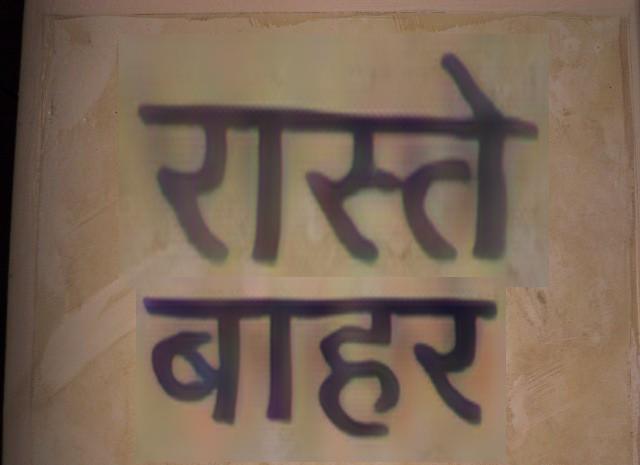 रास्ते
बाहर